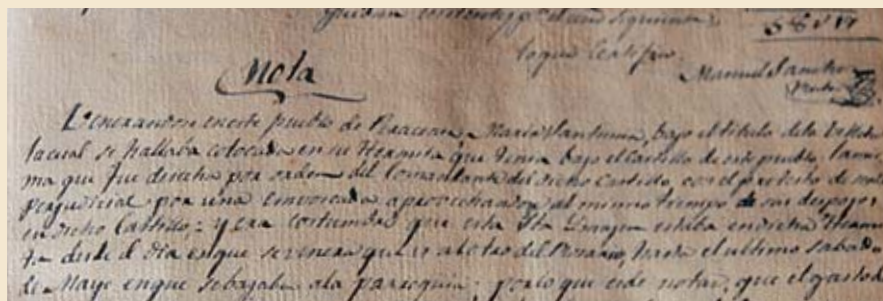 quedan existentes pª el año siguiente
loque Certifico.
Manuel Sancho
Nota
Veneravase en este pueblo de Peracense a Maria Santisima, bajo el titulo dela Villeta
lacual se hallaba colocada en su Hermita que tenia bajo el Castillo de este pueblo, la mis
ma que fue desecha por orden del Comandante del dicho Castillo, con el pretexto de serle
perjudicial por una aprovechandose al mismo tiempo de sus despojos
en dicho Castillo; y era costumbre que esta Sta Ymagen estaba en dicha Hermi
ta desde el dia en que se venera del Rosario, hasta el ultimo sabado
de Mayo enque sebajaba ala parroquia; porlo que es de notar, que el gasto de